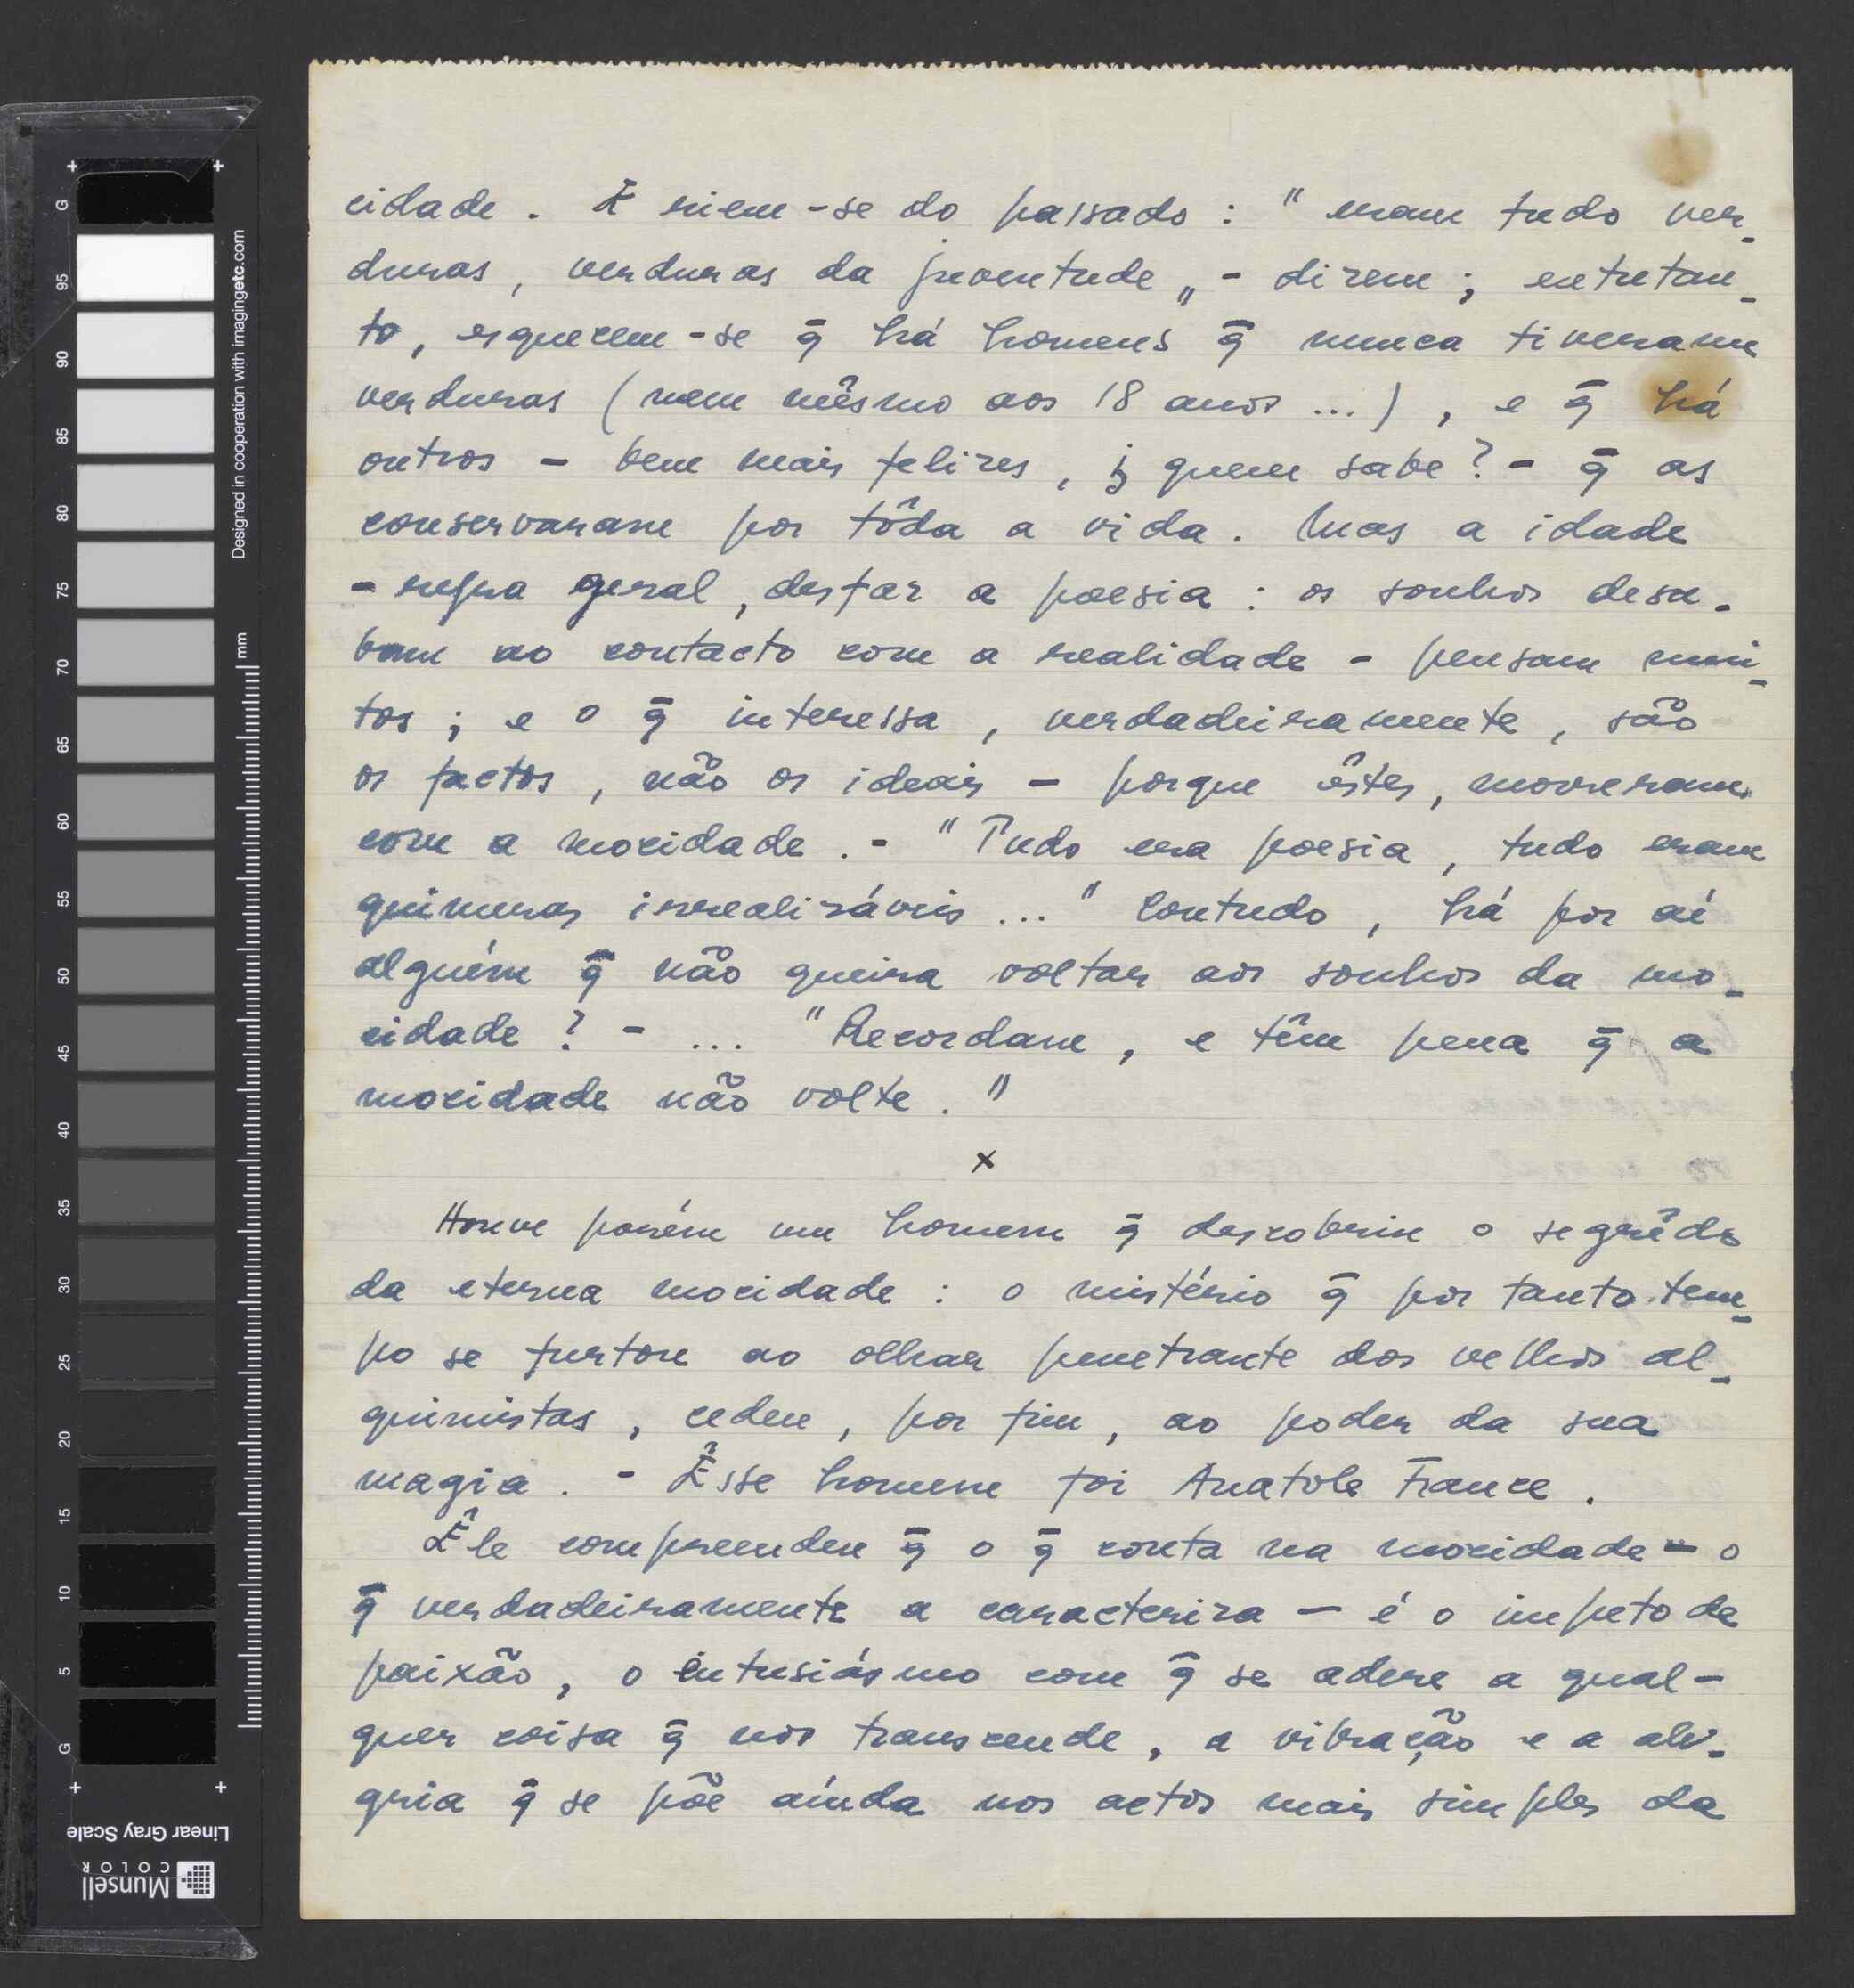 cidade. E riem-se do passado: "eram tudo ver-
duras, verduras da juventude„ - dizem; entretan-
to, esquecem-se q̄ há homens q̄ nunca tiveram
verduras (nem mêsmo aos 18 anos...), e q̄ há
outros - bem mais felizes, quem sabe? - q̄ as
conservaram por tôda a vida. Mas a idade
- regra geral, desfaz a poesia: os sonhos desa-
bam ao contacto com a realidade - pensam mui-
tos; e o q̄ interessa, verdadeiramente, são
os factos, não os ideais - porque êstes, morreram
com a mocidade. - "Tudo era poesia, tudo eram
quimeras irrealizáveis..." Contudo, há por aí
alguém q̄ não queira voltar aos sonhos da mo-
cidade? - ... "Recordam, e têm pena q̄ a
mocidade não volte."
x
Houve porém um homem q̄ descobriu o segrêdo
da eterna mocidade: o mistério q̄ por tanto tem-
po se furtou ao olhar penetrante dos velhos al-
quimistas, cedeu, por fim, ao poder da sua
magia. - Êsse homem foi Anatole France.
Êle compreendeu q̄ o q̄ conta na mocidade - o
q̄ verdadeiramente a caracteriza - é o impeto de
paixão, o entusiásmo com q̄ se adere a qual-
quer coisa q̄ nos transcende, a vibração e a ale-
gria q̄ se põe aínda nos actos mais simples da
Designed in cooperation with imagingetc.com
mm
G
95
90
85
80
75
70
65
60
55
50
45
40
35
30
25
20
15
10
5
G
Linear Gray Scale
Munsell
COLOR